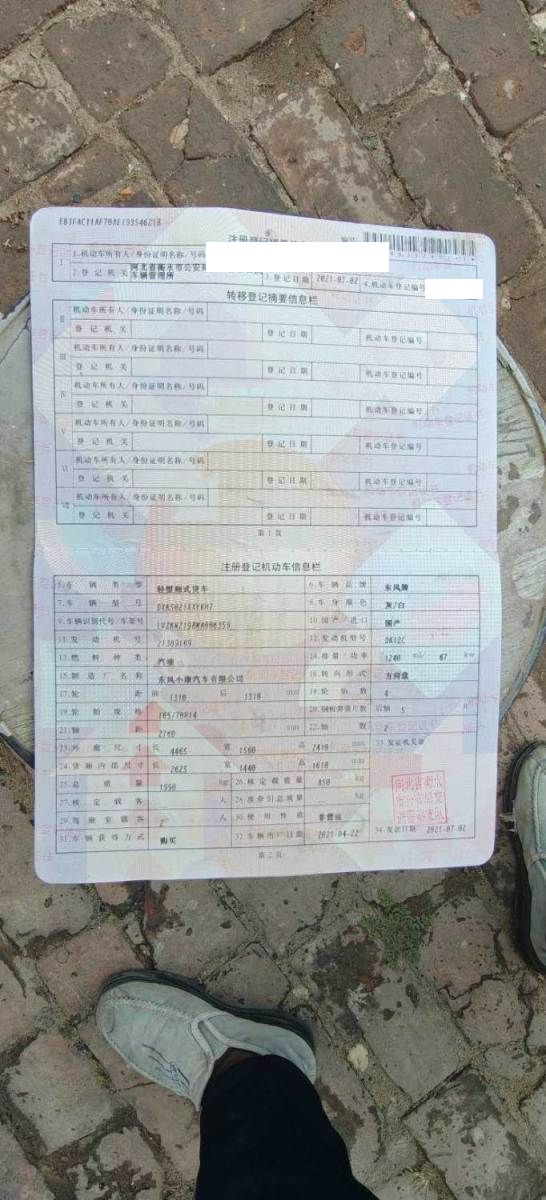 注册登记摘要信息栏
编号:
Ⅰ 1.机动车所有人/身份证明名称/号码
2.登记机关 河北省衡水市公安局 车辆管理所 3.登记日期 2021-07-02 4.机动车登记编号
转移登记摘要信息栏
Ⅱ 机动车所有人/身份证明名称/号码
登记机关 登记日期 机动车登记编号
Ⅲ 机动车所有人/身份证明名称/号码
登记机关 登记日期 机动车登记编号
Ⅳ 机动车所有人/身份证明名称/号码
登记机关 登记日期 机动车登记编号
Ⅴ 机动车所有人/身份证明名称/号码
登记机关 登记日期 机动车登记编号
Ⅵ 机动车所有人/身份证明名称/号码
登记机关 登记日期 机动车登记编号
Ⅶ 机动车所有人/身份证明名称/号码
登记机关 登记日期 机动车登记编号
第1页
注册登记机动车信息栏
5.车辆类型 轻型厢式货车 6.车辆品牌 东风牌
7.车辆型号 8.车身颜色 灰/白
9.车辆识别代号/车架号 10.国产/进口 国产
11.发动机号 21309169 12.发动机型号 DK12C
13.燃料种类 汽油 14.排量/功率 1240 ml/ 67 kw
15.制造厂名称 东风小康汽车有限公司 16.转向形式 方向盘
17.轮距 前 1310 后 1310 mm 18.轮胎数 4
19.轮胎规格 165/70R14 20.钢板弹簧片数 后轴 5 片
21.轴距 2760 mm 22.轴数 2
23.外廓尺寸 长 4465 宽 1560 高 2410 mm 33.发证机关章
24.货厢内部尺寸 长 2625 宽 1440 高 1610 mm
25.总质量 1990 kg 26.核定载质量 850 kg
27.核定载客 人 28.准牵引总质量 kg
29.驾驶室载客 2 人 30.使用性质 非营运
31.车辆获得方式 购买 32.车辆出厂日期 2021-04-22 34.发证日期 2021-07-02
河北省衡水
市公安局交
第2页